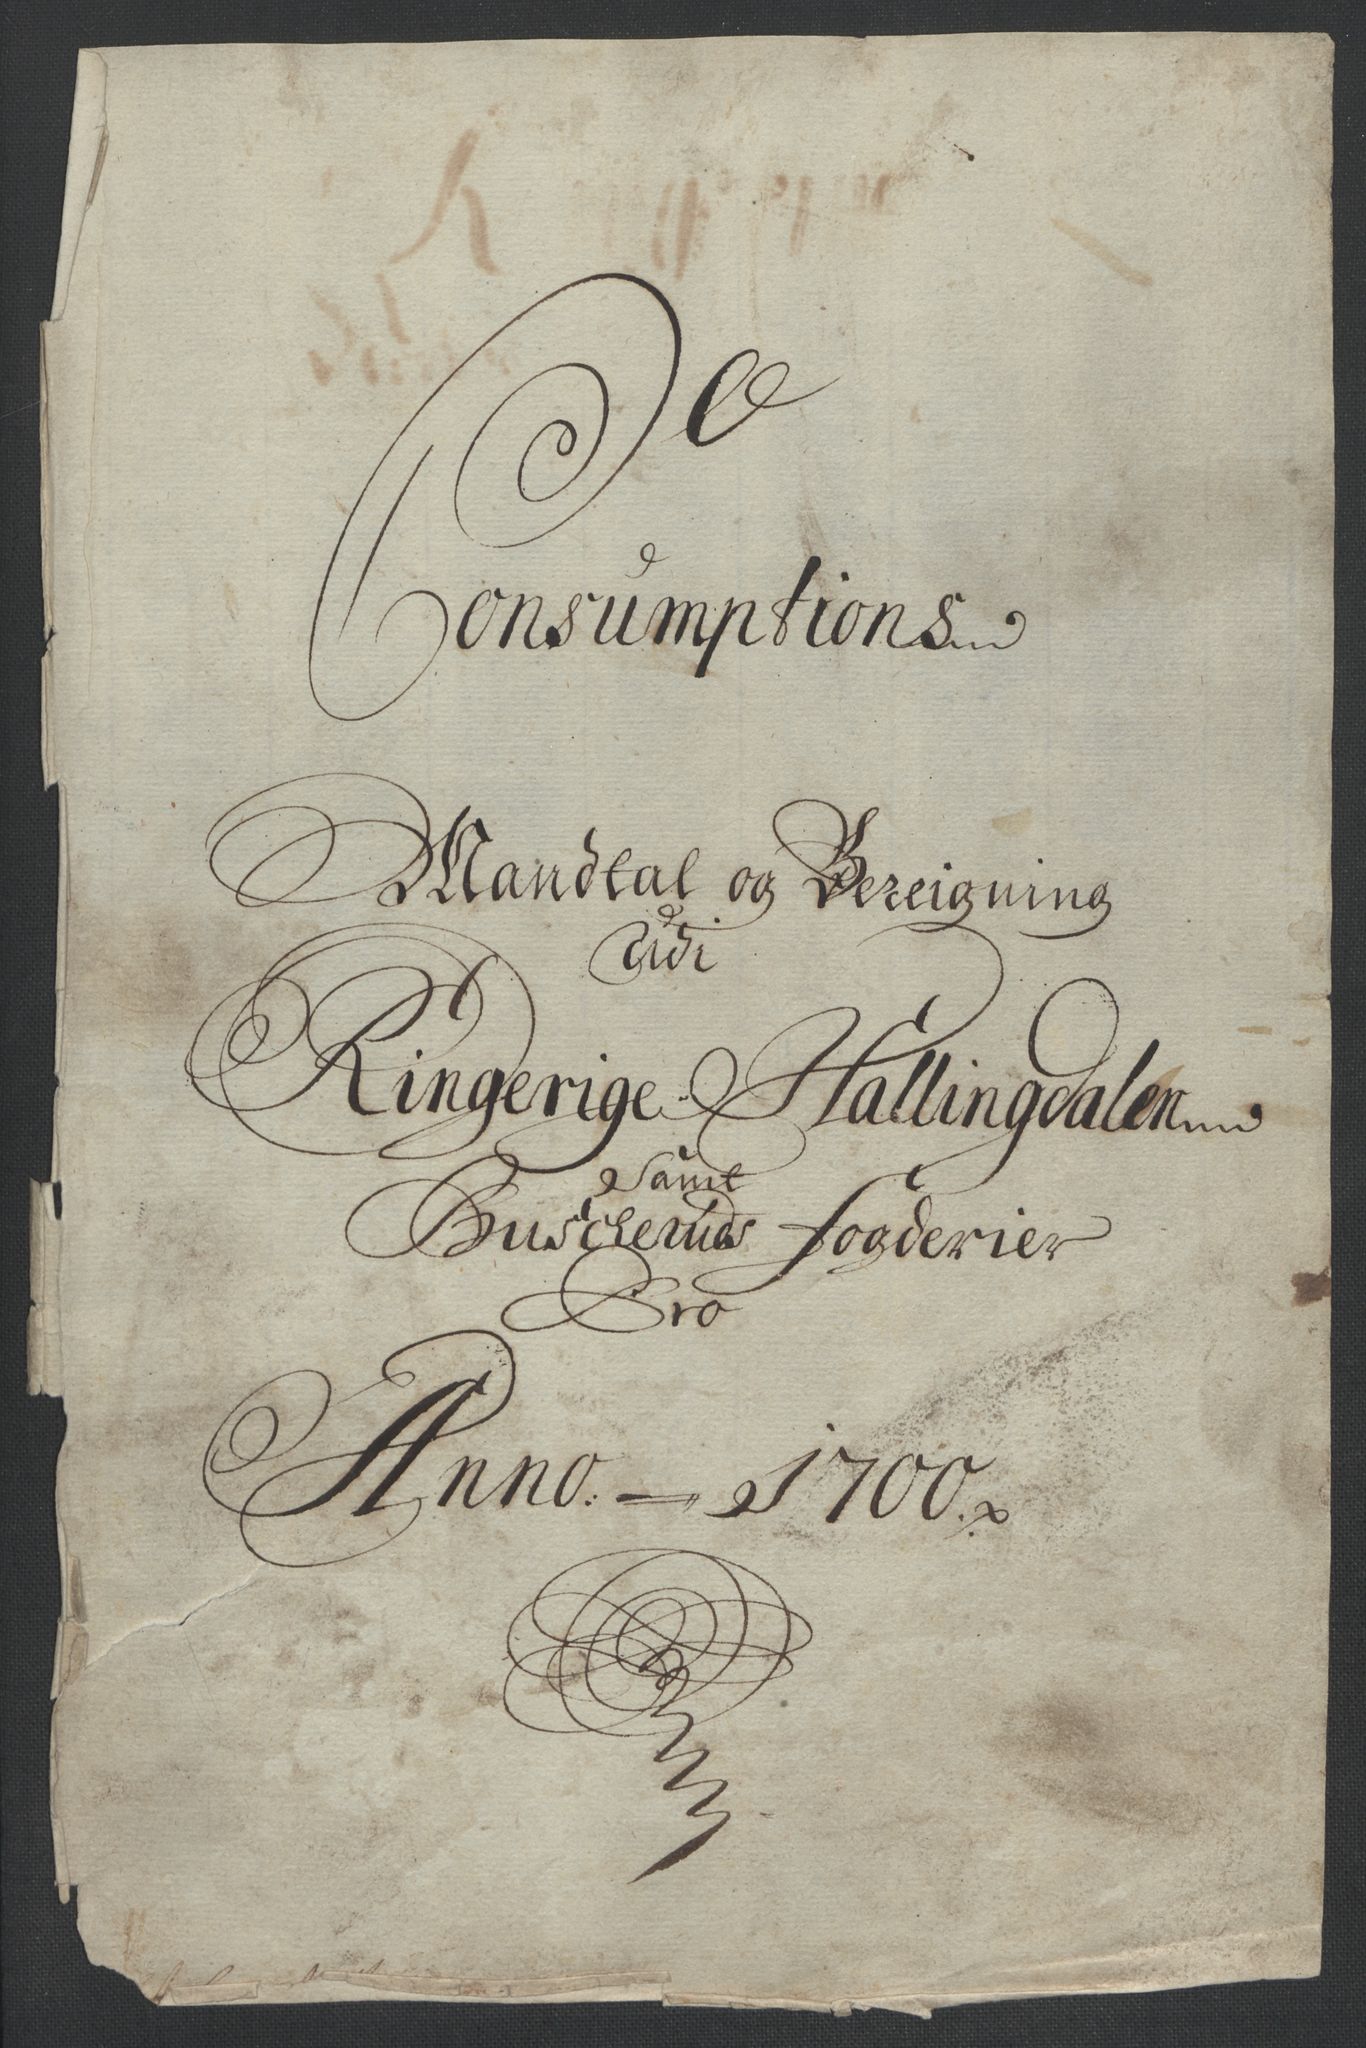 Consumptions
Mandtal og Bereigning
Udi
Ringerige Hallingdalen
Samt
Buscheruds fogderier
Pro
Anno. 1700.